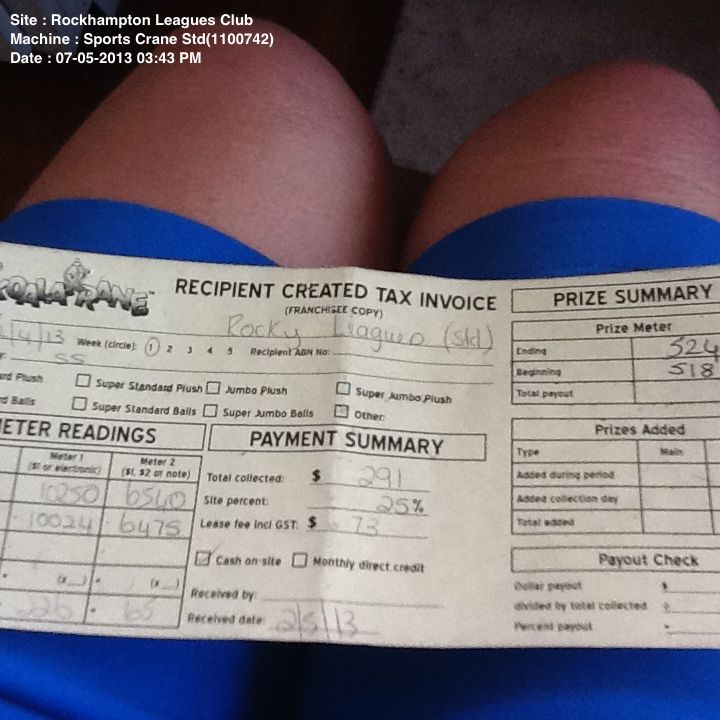 Site : Rockhampton Leagues Club
Machine : Sports Crane Std(1100742)
Date : 07-05-2013 03:43 PM
KOALA KRANE™ RECIPIENT CREATED TAX INVOICE
(FRANCHISEE COPY)
/4/13 Week (circle): 1 2 3 4 5 Recipient ABN No: Rocky Leagues (Std)
SS
Plush Super Standard Plush Jumbo Plush Super Jumbo Plush
Balls Super Standard Balls Super Jumbo Balls Other:
METER READINGS
Meter 1 Meter 2
($1 or electronic) ($1, $2 or note)
10250 6540
10024 6475
(x__) (x__)
226 65
PAYMENT SUMMARY
Total collected: $ 291
Site percent: 25%
Lease fee incl GST: $ 73
Cash on-site Monthly direct credit
Received by:
Received date: 2/5/13
PRIZE SUMMARY
Prize Meter
Ending 524
Beginning 518
Total payout
Prizes Added
Type Main
Added during period
Added collection day
Total added
Payout Check
Dollar payout $
divided by total collected ÷
Percent payout =